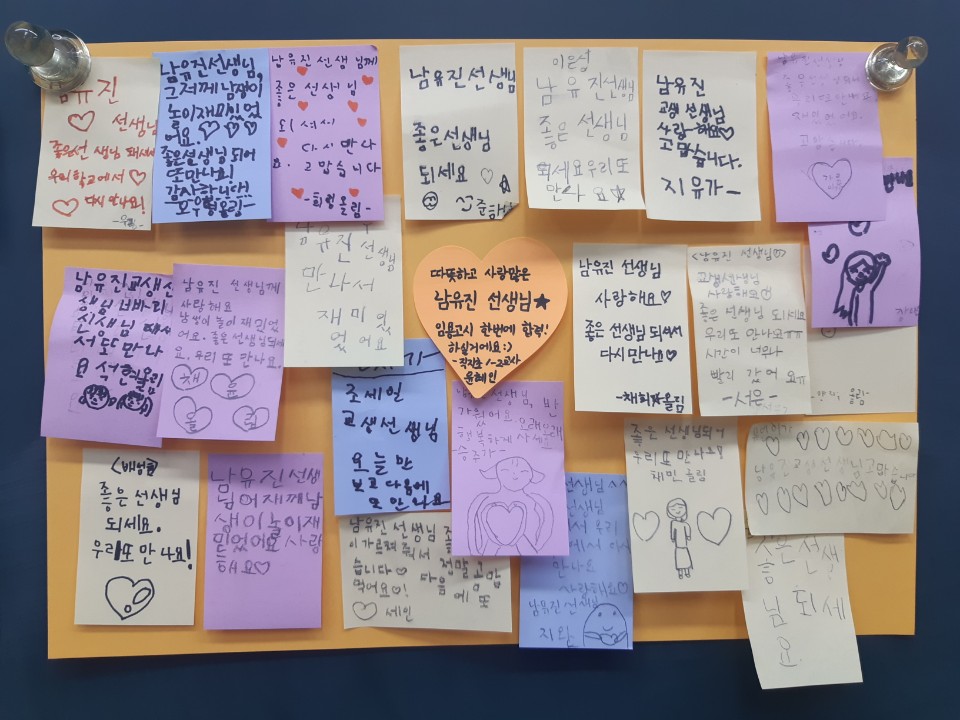 남유진
선생님
좋은선 생님 되세요
우리학교에서
다시 만나요!
남유진선생님,
그저께 남생이
놀이재미있었
어요.
좋은선생님 되어
또만나요!
감사합니다!!
남유진 선생님께
좋은 선생님
되셔서
다시 만나
요. 고맙습니다
-희령올림-
남유진선생님
좋은선생님
되세요
이은섭
남유진선생님
좋은 선생님
되세요우리또
만나요
남유진
교생 선생님
사랑해요
고맙습니다.
지유가-
고맙습니다
남유진 선생님
만나서
재미있
었어요
따뜻하고 사랑많은
남유진 선생님★
임용고시 한번에 합격!
하실거에요:)
-직진초 1-2교사
윤혜인
남유진 선생님
사랑해요♡
좋은 선생님 되셔서
다시만나요♡
-채희★올림
<남유진 선생님♡
교생선생님
사랑해요
좋은 선생님 되세요
우리또 만나요ㅠㅠ
시간이 너무나
빨리 갔어요ㅠㅠ
-서은-
남유진교생선
서또만나
요 석현올림
남유진 선생님께
사랑해요
남생이놀이 재밌었
어요. 좋은 선생님되세
요. 우리 또 만나요.
조세일
교생선생님
오늘만
보고 다음에
또만나요
선생님, 반
가웠어요 오래오래
행복하게 사세요
-승주가-
좋은 선생님되어
우리또 만나요!
채민 올림
좋은선생님
되세요.
우리또만나요!
남유진선생
님어재께남
생이놀이재
밌었어요 사랑
해요♡
남유진 선생님
이가르쳐 줘서
정말 고맙
습니다♡
다음에 또
먹어요♡!
세인
만나요
사랑해요♡
남유진선생님
지완
좋은 선생
님 되세
요